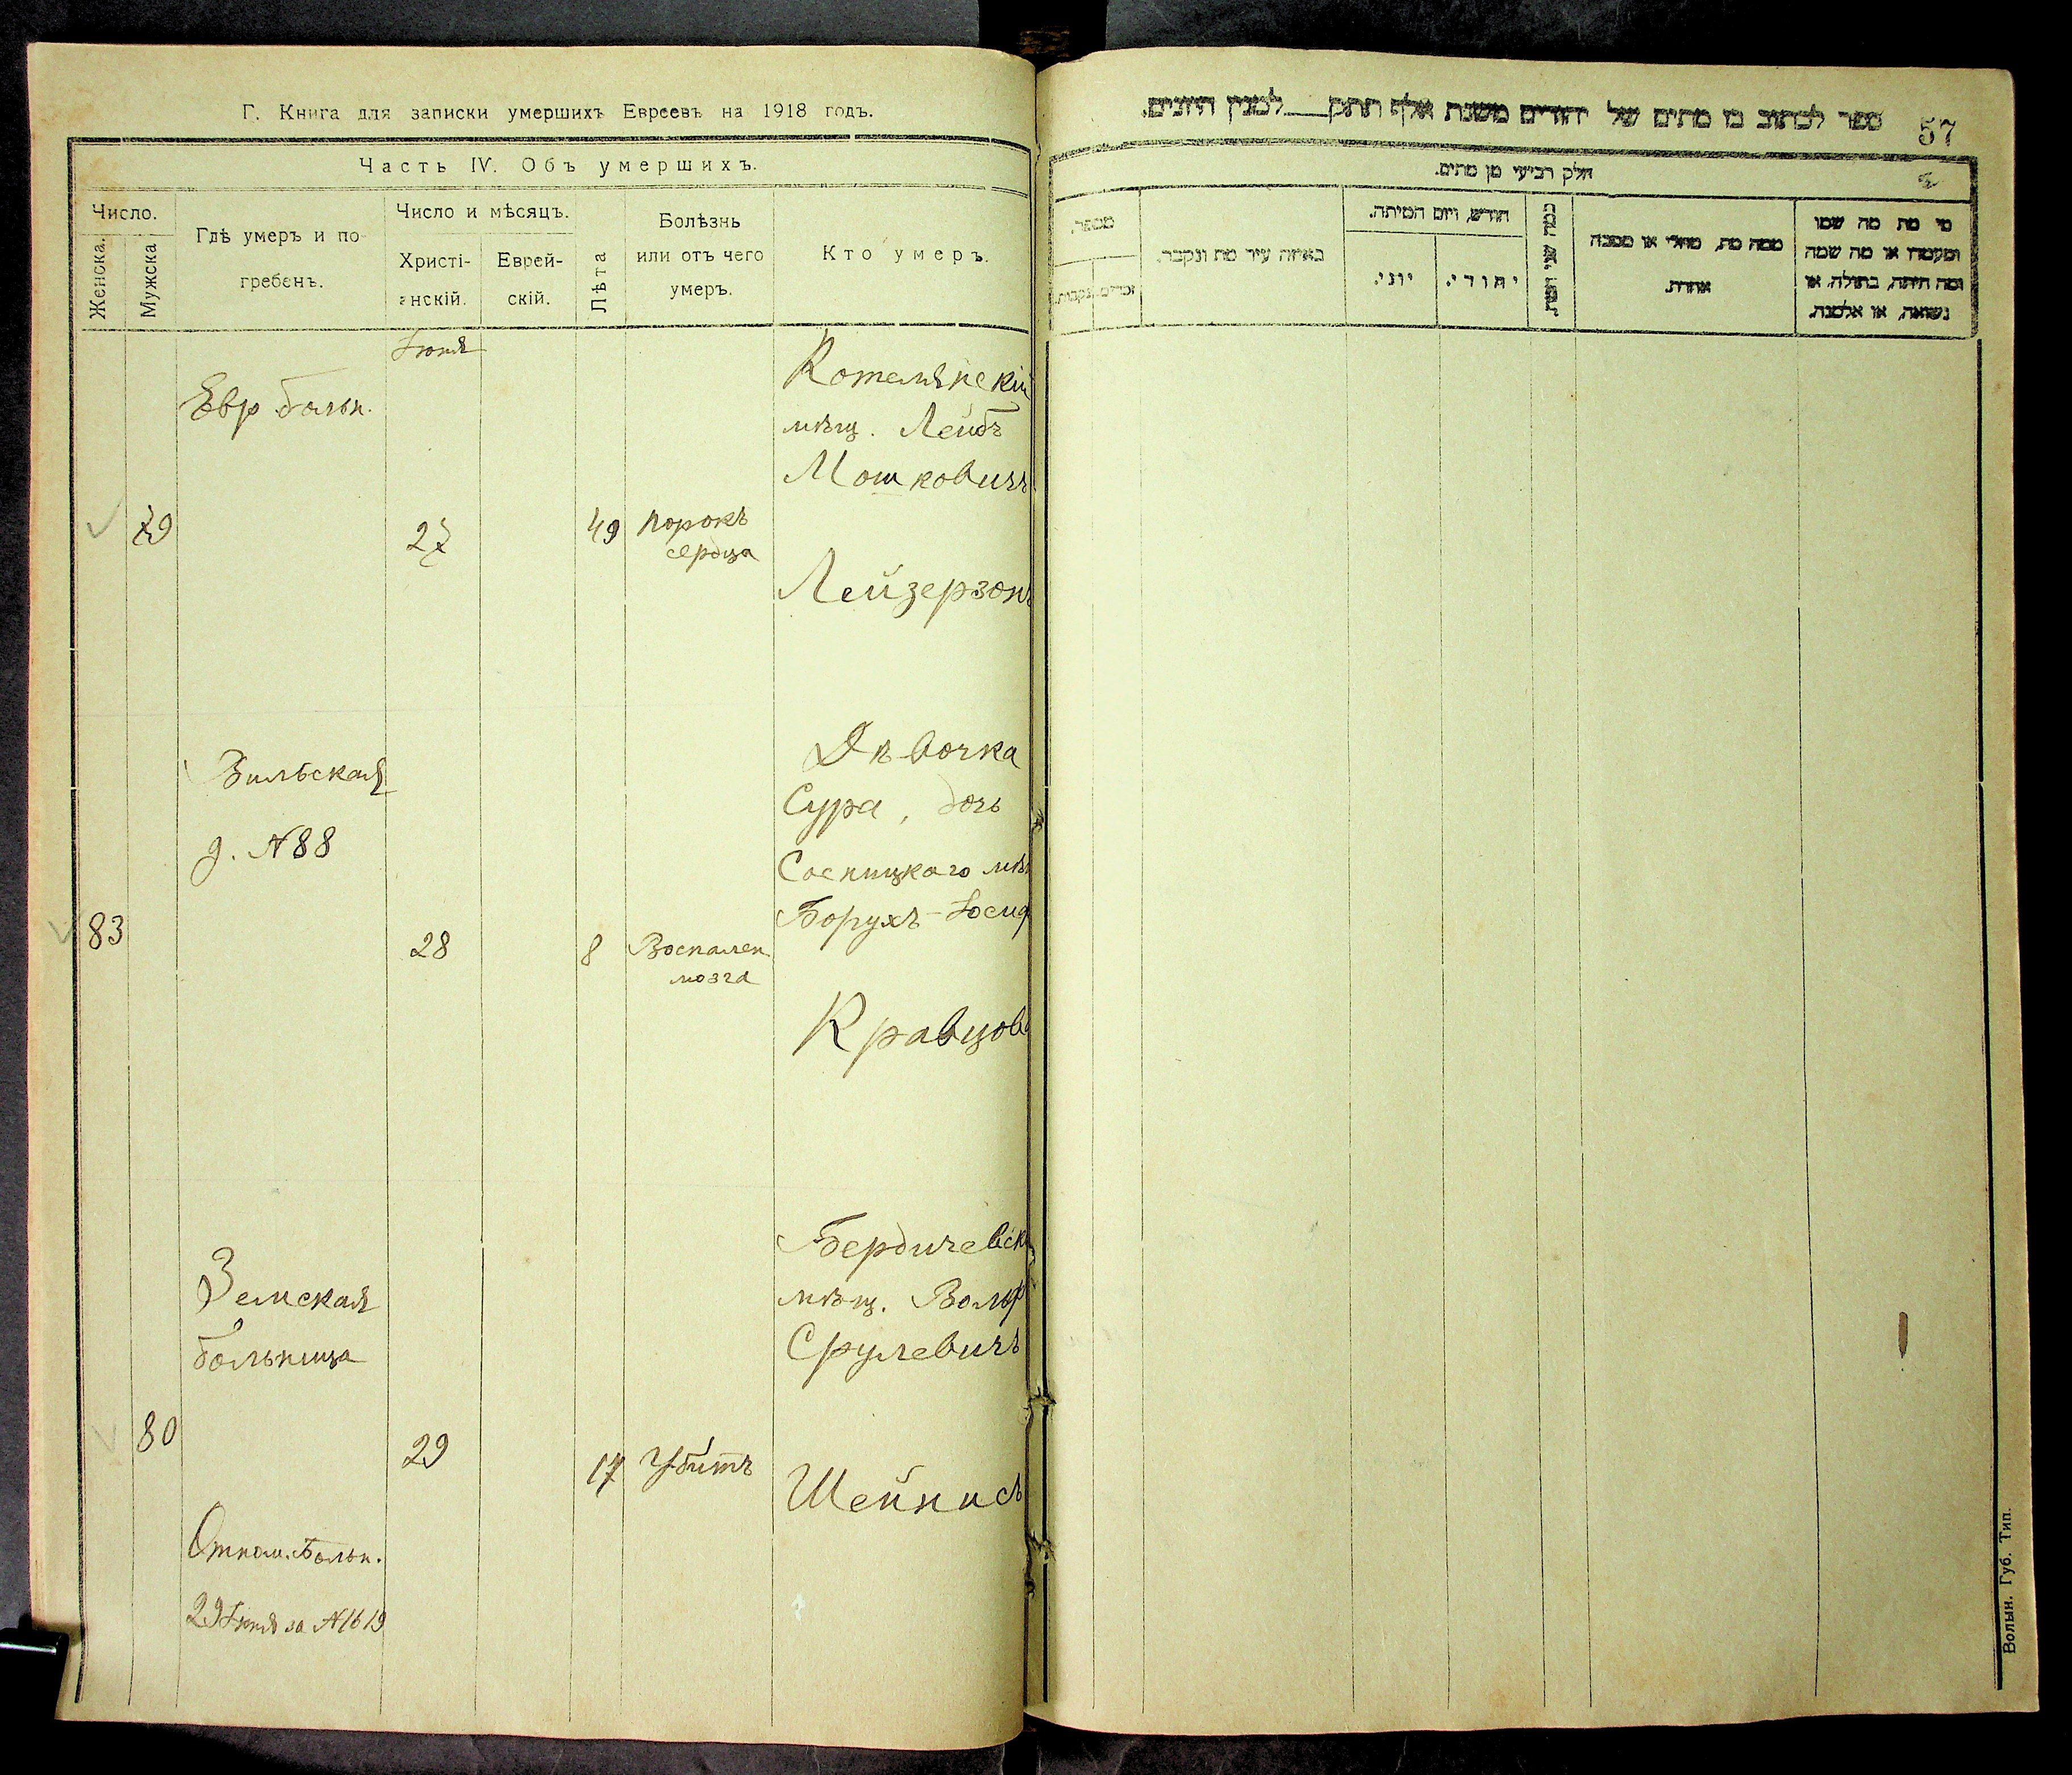 Г. Книга для записки умершихъ Евреевъ на 1918 годъ.
Часть IV. Объ умершихъ.
Число.
Женска.
Мужска
Гдѣ умеръ и по-
гребенъ.
Число и мѣсяцъ.
Христі-
анскій.
Еврей-
скій.
Лѣта
Болѣзнь
или отъ чего
умеръ.
Кто умеръ.
Іюня
Евр. больн.
79
27
49
порокъ
сердца
Котельнскій
мѣщ. Лейбъ
Мошковичъ
Лейзерзонъ
Вильская
д. №88
83
28
8
Воспален.
мозга
Дѣвочка
Сура, дочь
Сосницкаго мѣщ
Борухъ-Іосиф
Кравцов
Земская
больница
80
29
17
Убитъ
Бердичевск
мѣщ. Вольф
Срулевичъ
Шейнисъ
Отнош. Больн.
29 Іюня за №1619
ספר לכתוב בו מתים של יהודים משנת אלף תתק לטנין היונים.
57
חלק רביעי מן מתים.
מספר.
זכרים.
נקבות.
באיזה עיר מת ונקבר.
חודש, ויום המיתה.
יוני.
יהודי.
כמה שני המת.
ממה מת, מחלי או מסבה
אחרת.
מי מת מה שמו
ומעמדו או מה שמה
ומה היתה, בתולה, או
נשואה, או אלמנה.
Волын. Губ. Тип.